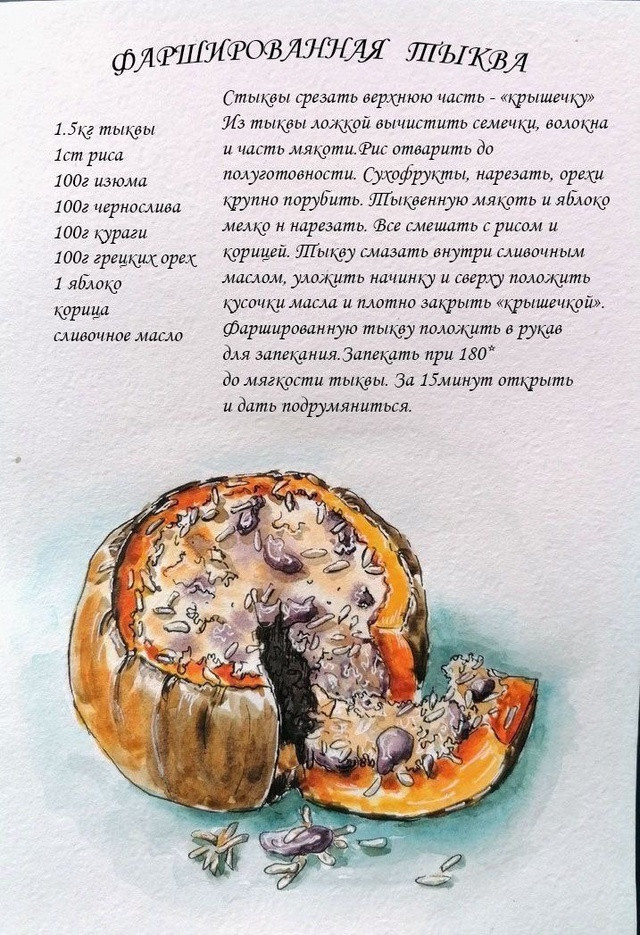 ФАРШИРОВАННАЯ ТЫКВА
1.5кг тыквы
1ст риса
100г изюма
100г чернослива
100г кураги
100г грецких орех
1 яблоко
корица
сливочное масло
Стыквы срезать верхнюю часть - «крышечку»
Из тыквы ложкой вычистить семечки, волокна
и часть мякоти.Рис отварить до
полуготовности. Сухофрукты, нарезать, орехи
крупно порубить. Тыквенную мякоть и яблоко
мелко н нарезать. Все смешать с рисом и
корицей. Тыкву смазать внутри сливочным
маслом, уложить начинку и сверху положить
кусочки масла и плотно закрыть «крышечкой».
Фаршированную тыкву положить в рукав
для запекания.Запекать при 180*
до мягкости тыквы. За 15минут открыть
и дать подрумяниться.